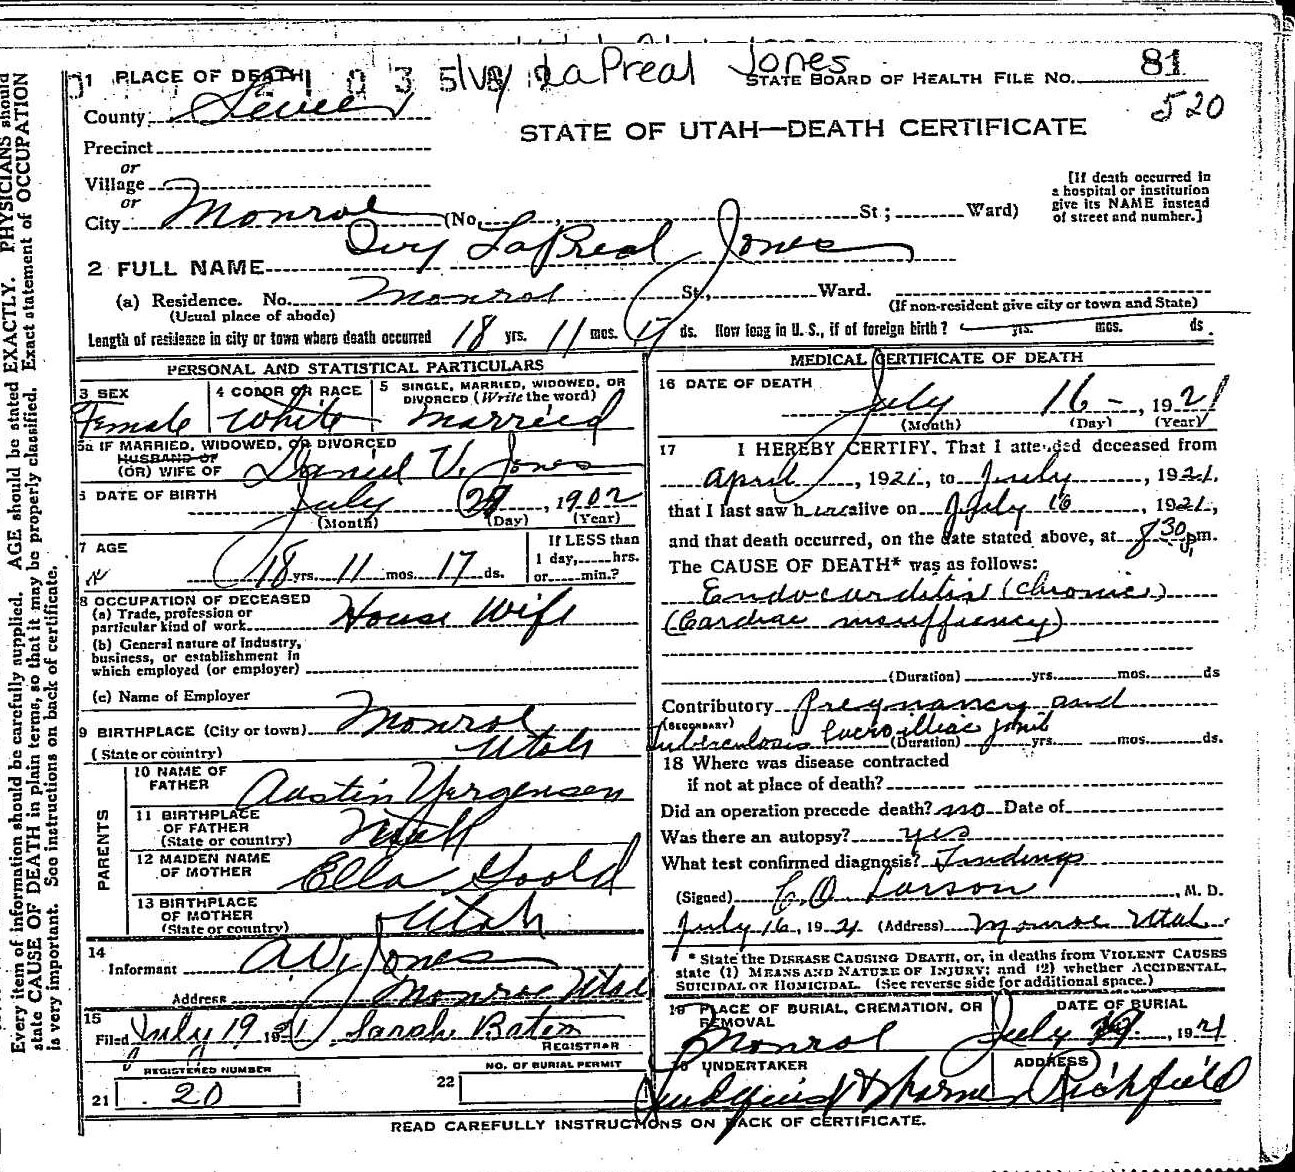 Every item of information should be carefully supplied. AGE should be stated EXACTLY. PHYSICIANS should
state CAUSE OF DEATH in plain terms, so that it may be properly classified. Exact statement of OCCUPATION
is very important. See instructions on back of certificate.
Ivy LaPreal Jones
1 PLACE OF DEATH
STATE BOARD OF HEALTH FILE NO. 81
520
County: Sevier
STATE OF UTAH—DEATH CERTIFICATE
Precinct
or
Village
or
City Monroe (No. , St; Ward)
[If death occurred in
a hospital or institution
give its NAME instead
of street and number.]
2 FULL NAME Ivy LaPreal Jones
(a) Residence. No. Monroe St., Ward.
(Usual place of abode)
(If non-resident give city or town and State)
Length of residence in city or town where death occurred 18 yrs. 11 mos. 17 ds. How long in U. S., if of foreign birth? yrs. mos. ds.
PERSONAL AND STATISTICAL PARTICULARS
3 SEX
Female
4 COLOR OR RACE
White
5 SINGLE, MARRIED, WIDOWED, OR
DIVORCED (Write the word)
Married
5a IF MARRIED, WIDOWED, OR DIVORCED
HUSBAND OF
(OR) WIFE OF Daniel V. Jones
6 DATE OF BIRTH July 29, 1902
(Month) (Day) (Year)
7 AGE
18 yrs. 11 mos. 17 ds.
If LESS than
1 day, hrs.
or min.?
8 OCCUPATION OF DECEASED
(a) Trade, profession or
particular kind of work House Wife
(b) General nature of industry,
business, or establishment in
which employed (or employer)
(c) Name of Employer
9 BIRTHPLACE (City or town) Monroe
(State or country) Utah
PARENTS
10 NAME OF
FATHER Austin Yergensen
11 BIRTHPLACE
OF FATHER
(State or country) Utah
12 MAIDEN NAME
OF MOTHER Ella Goold
13 BIRTHPLACE
OF MOTHER
(State or country) Utah
14
Informant Jones
Address Monroe Utah
15
Filed July 19 1921 Sarah Bates
REGISTRAR
REGISTERED NUMBER
21 20
NO. OF BURIAL PERMIT
22
MEDICAL CERTIFICATE OF DEATH
16 DATE OF DEATH
July 16 -, 1921
(Month) (Day) (Year)
17 I HEREBY CERTIFY, That I attended deceased from
April, 1921, to July, 1921.
that I last saw her alive on July 16, 1921,
and that death occurred, on the date stated above, at 8 30 p.m.
The CAUSE OF DEATH* was as follows:
Endocarditis (chronic)
(Cardiac insuffiency)
(Duration) yrs. mos. ds
Contributory Pregnancy and
(SECONDARY)
tuberculosis Sacroilliac joint
(Duration) yrs. mos. ds.
18 Where was disease contracted
if not at place of death?
Did an operation precede death? no Date of
Was there an autopsy? yes
What test confirmed diagnosis? Findings
(Signed) C. O. Larson, M. D.
July 16, 1921 (Address) Monroe Utah.
* State the DISEASE CAUSING DEATH, or, in deaths from VIOLENT CAUSES
state (1) MEANS AND NATURE OF INJURY; and (2) whether ACCIDENTAL,
SUICIDAL OR HOMICIDAL. (See reverse side for additional space.)
19 PLACE OF BURIAL, CREMATION, OR
REMOVAL
Monroe
DATE OF BURIAL
July, 1921
UNDERTAKER
ADDRESS
Richfield
READ CAREFULLY INSTRUCTIONS ON BACK OF CERTIFICATE.